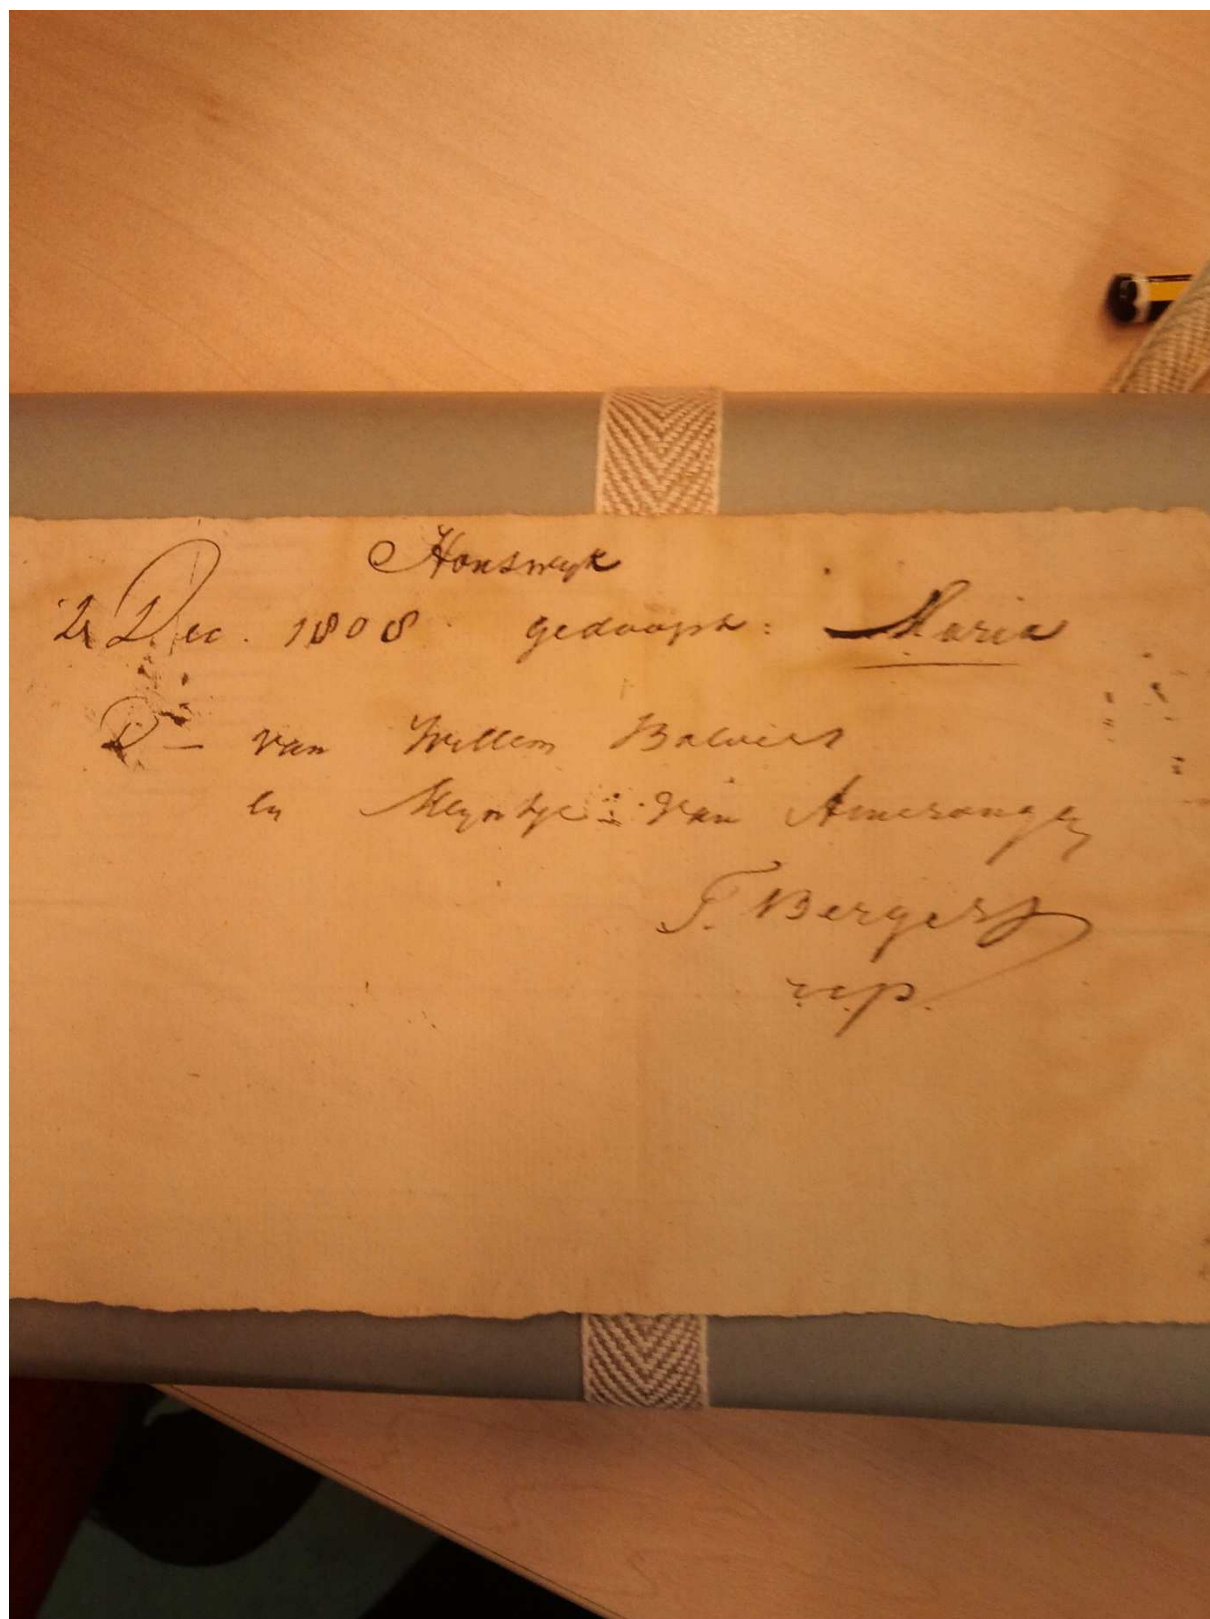 Honswyk
2 Dec. 1808 gedoopt: Maria
D— van Willem
en Meyntje van Amerongen
F. Bergers
r.c.p.